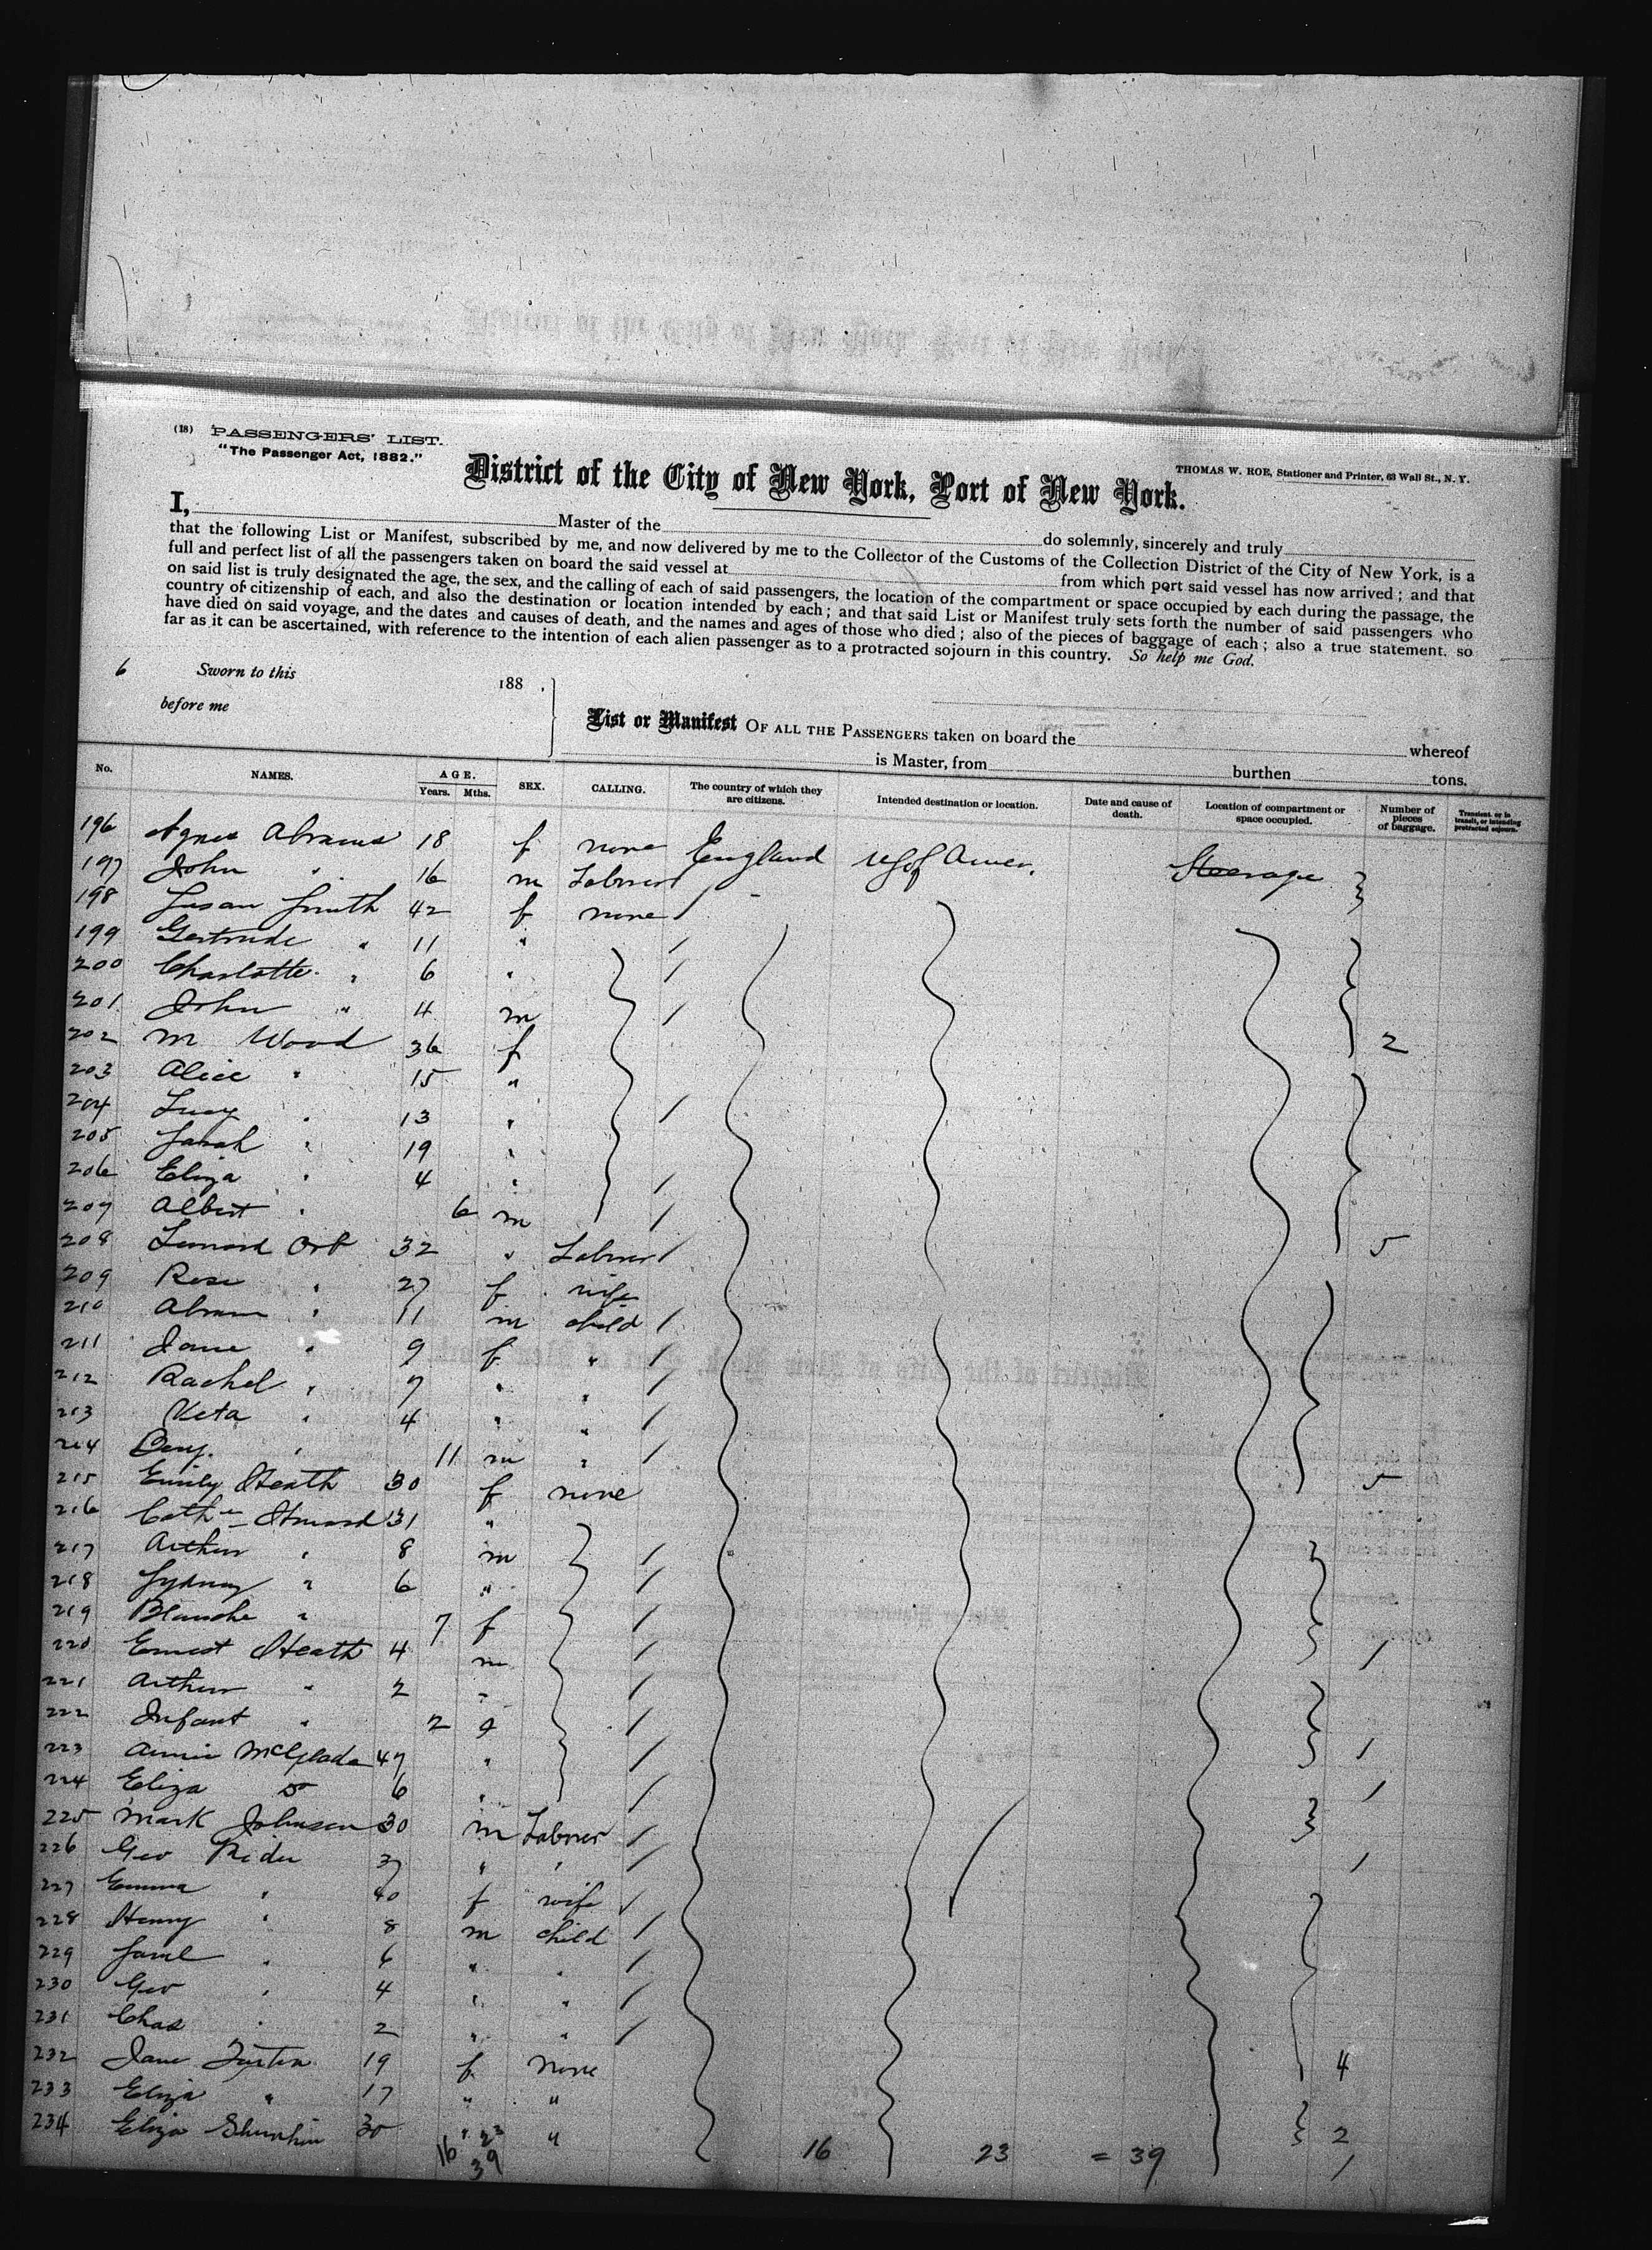 (18) PASSENGERS' LIST.
"The Passenger Act, 1882."
THOMAS W. ROE, Stationer and Printer, 63 Wall St., N. Y.
District of the City of New York, Port of New York.
I, Master of the do solemnly, sincerely and truly
that the following List or Manifest, subscribed by me, and now delivered by me to the Collector of the Customs of the Collection District of the City of New York, is a
full and perfect list of all the passengers taken on board the said vessel at from which port said vessel has now arrived; and that
on said list is truly designated the age, the sex, and the calling of each of said passengers, the location of the compartment or space occupied by each during the passage, the
country of citizenship of each, and also the destination or location intended by each; and that said List or Manifest truly sets forth the number of said passengers who
have died on said voyage, and the dates and causes of death, and the names and ages of those who died; also of the pieces of baggage of each; also a true statement, so
far as it can be ascertained, with reference to the intention of each alien passenger as to a protracted sojourn in this country. So help me God.
6 Sworn to this 188 .
before me
List or Manifest OF ALL THE PASSENGERS taken on board the whereof
is Master, from burthen tons.
No. NAMES. AGE. Years. Mths. SEX. CALLING. The country of which they are citizens. Intended destination or location. Date and cause of death. Location of compartment or space occupied. Number of pieces of baggage. Transient, or in transit, or intending protracted sojourn.
196 Agnes Abrams 18 f none England US of Amer. Steerage
197 John " 16 m Labourer
198 Susan Smith 42 f none
199 Gertrude " 11 "
200 Charlotte " 6 "
201 John " 4 m
202 M Wood 36 f 2
203 Alice " 15 "
204 Lucy " 13 "
205 Sarah " 19 "
206 Eliza " 4 "
207 Albert " 6 m
208 Leonard 32 " Labourer 5
209 Rose " 27 f wife
210 Abram " 11 m child
211 Jane " 9 f "
212 Rachel " 7 " "
213 " 4 " "
214 Benj. " 11 m "
215 Emily Heath 30 f none 5
216 Cathe 31 "
217 Arthur " 8 m
218 Sydney " 6 "
219 Blanche " 7 f
220 Ernest Heath 4 m 1
221 Arthur " 2 "
222 Infant " 2 f
223 Annie McGlade 47 " 1
224 Eliza Do 6 " 1
225 Mark Johnson 30 m Labourer
226 Geo Rider 37 " " 1
227 Emma " 40 f wife
228 Henry " 8 m child
229 Saml " 6 " "
230 Geo " 4 " "
231 Chas " 2 " "
232 Jane 19 f none 4
233 Eliza " 17 " "
234 Eliza 30 " " 2
16 23 39 16 23 = 39 1